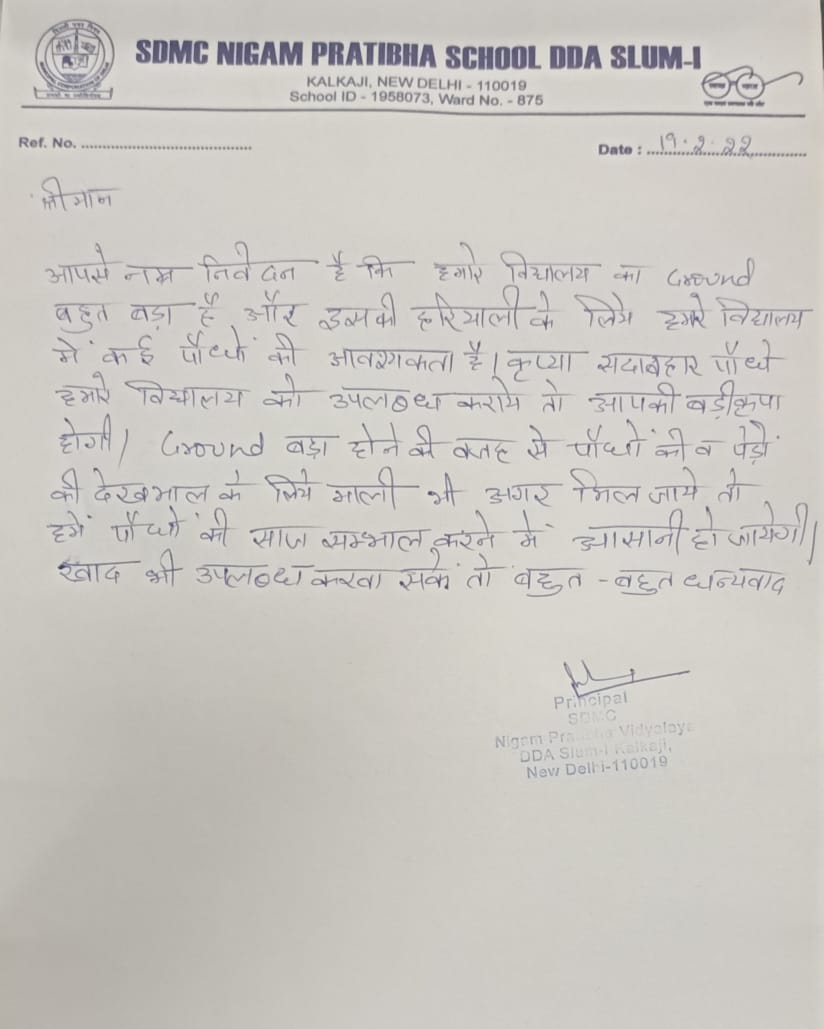 SDMC NIGAM PRATIBHA SCHOOL DDA SLUM-I
KALKAJI, NEW DELHI - 110019
School ID - 1958073, Ward No. - 875
Ref. No. ................................................
Date : 19.2.22
श्रीमान
आपसे नम्र निवेदन है कि हमारे विद्यालय का Ground
बहुत बड़ा है और इसकी हरियाली के लिये हमारे विद्यालय
में कई पौधों की आवश्यकता है। कृप्या सदाबहार पौधे
हमारे विद्यालय को उपलब्ध कराये तो आपकी बड़ी कृपा
होगी। Ground बड़ा होने की वजह से पौधों की व पेड़ों
की देखभाल के लिये माली भी अगर मिल जाये तो
हमें पौधों की साज सम्भाल करने में आसानी हो जायेगी।
खाद भी उपलब्ध करवा सकें तो बहुत - बहुत धन्यवाद
Principal
SDMC
Nigam Pratibha Vidyalaya
DDA Slum-I Kalkaji,
New Delhi-110019